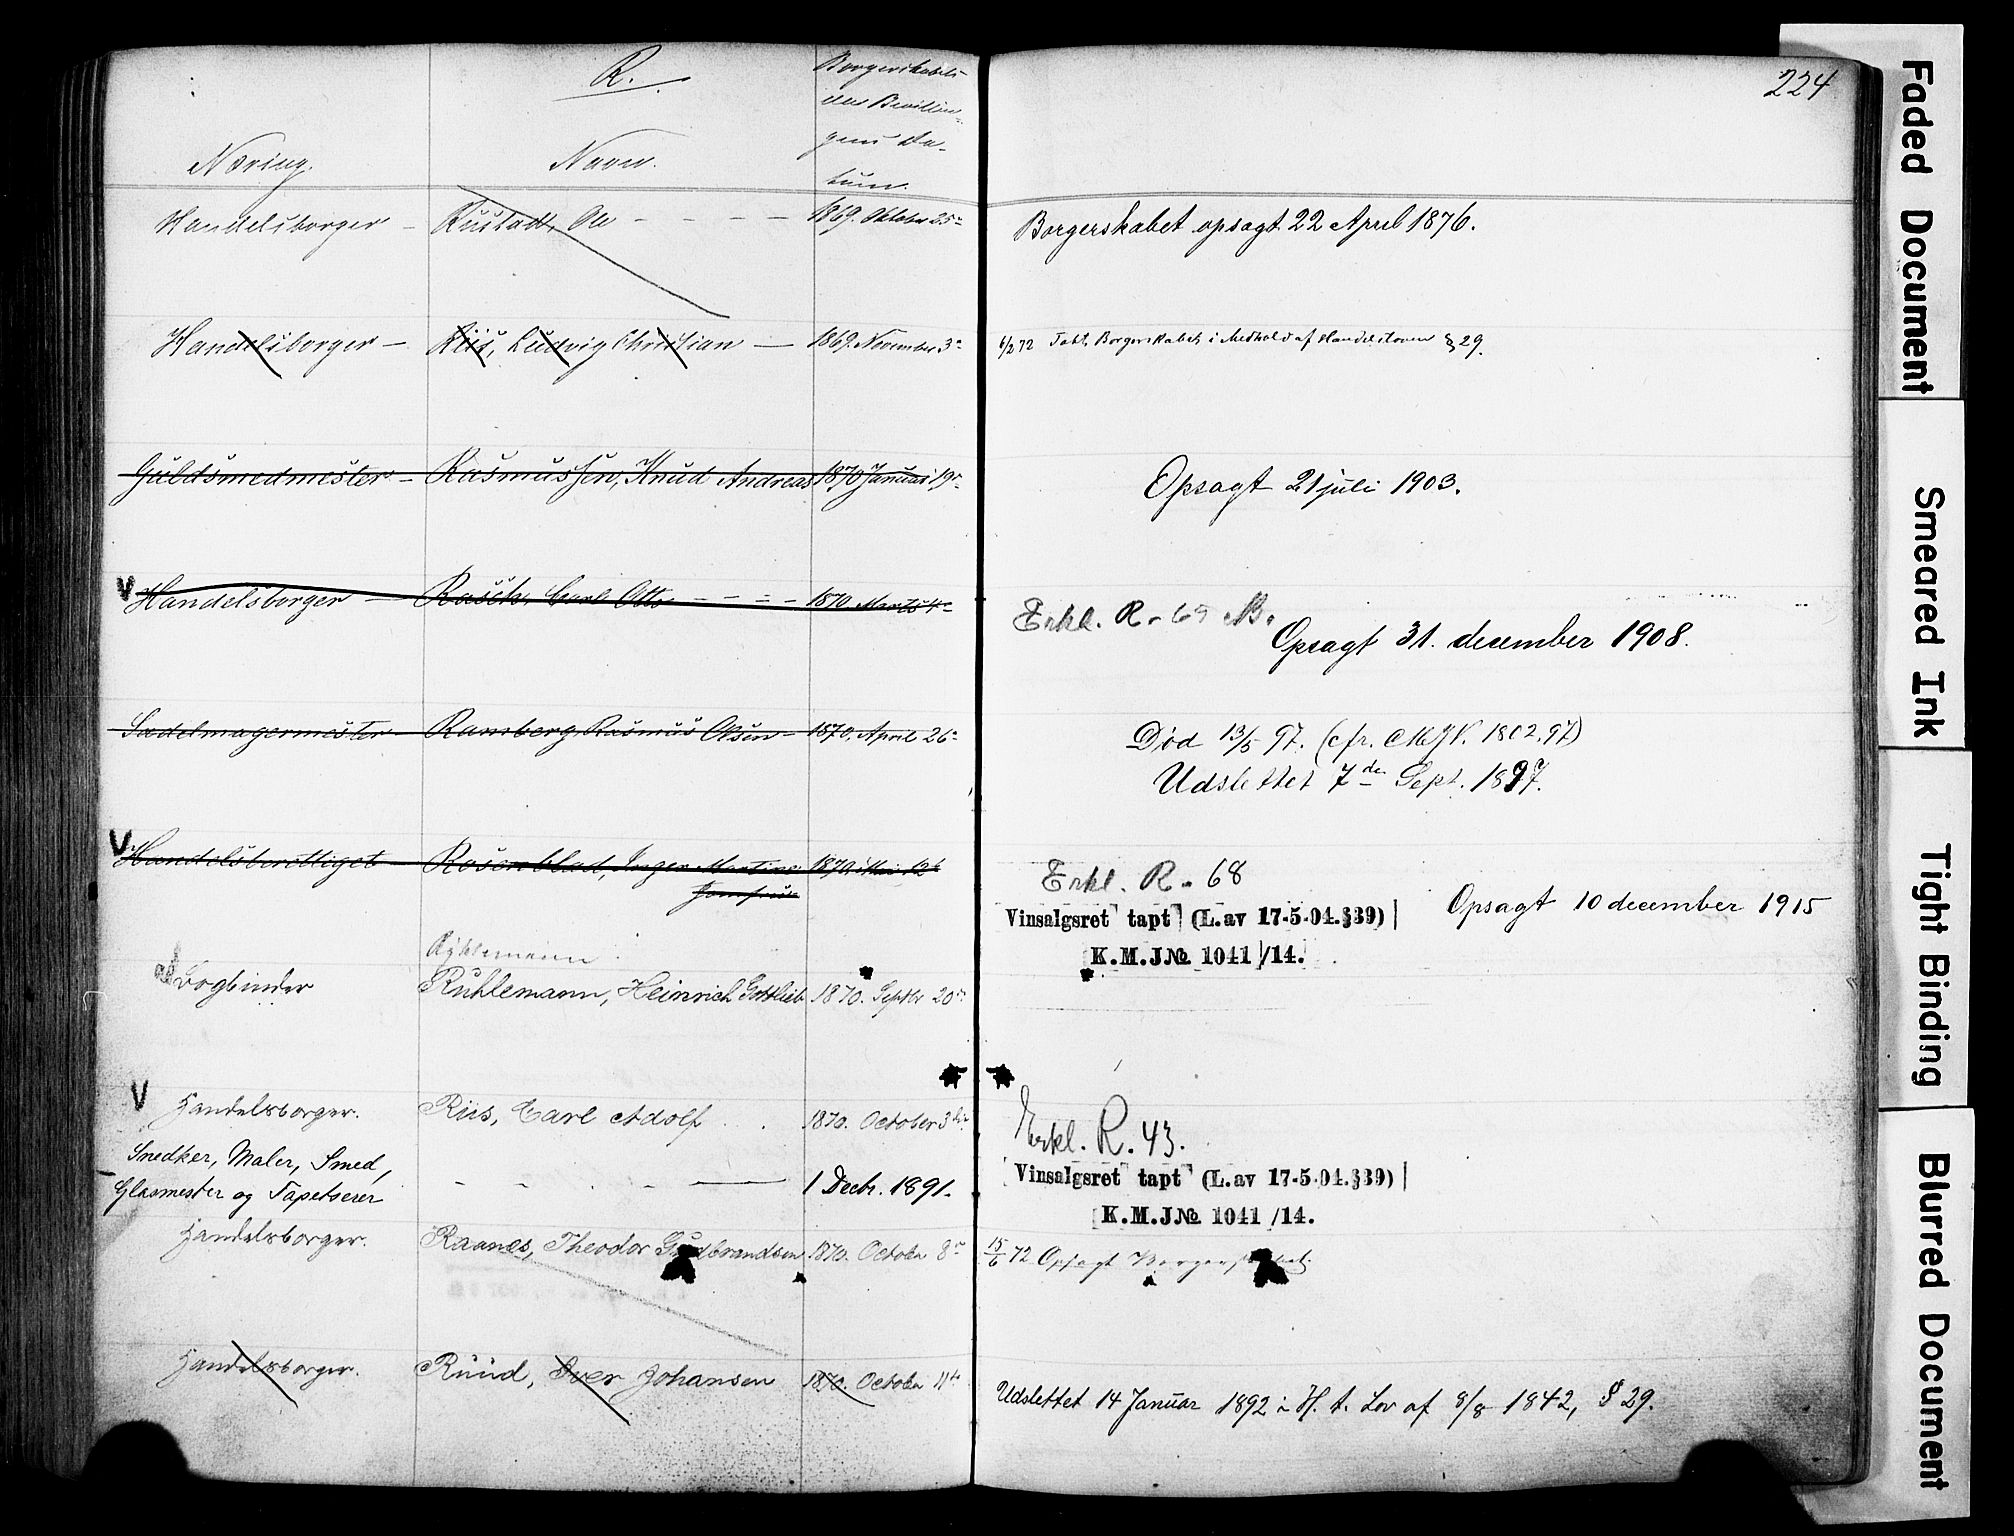 R.
224
Næring.
Navn.
Borgerskabets
eller Bevillin-
gens Da-
tum.
Handelsborger – Rustad, Ole – – – – 1869. Oktober 25
Borgerskabet opsagt 22 April 1876.
Handelsborger – Riis, Ludvig Christian – 1869. November 3
6/2 72 Tabt Borgerskabet i Medhold af Handelsloven § 29.
Guldsmedmester – Rasmussen, Knud Andreas 1870 Januar 19
Opsagt 21 juli 1903.
V Handelsborger – Rasch, Carl Otto – – – – 1870. Marts 4
Erkl. R. 69
Opsagt 31. december 1908.
Sadelmagermester – Ramberg, Rasmus Olsen – 1870. April 26
Død 13/5 97. (cfr. MJN. 1802.97)
Udslettet 7de Sept. 1897.
V Handelsberettiget – Rosenblad, Inger Martine 1870 Mai 12
Erkl. R. 68
Vinsalgsret tapt (L.av 17-5-04.§39)
Opsagt 10 december 1915
K.M.J№ 1041/14.
Bogbinder Ruhlemann, Heinrich Gottlieb 1870. Septbr 20
V Handelsborger. Riis, Carl Adolf . . 1870. October 3die
Erkl. R. 43.
Snedker, Maler, Smed,
Glasmester og Tapetserer – – – – 1 Decbr. 1891.
Vinsalgsret tapt (L.av 17-5-04.§39)
K.M.J№ 1041/14.
Handelsborger. Raanes, Theodor Gudbrandsen 1870. October 8
15/6 72 Opsagt Borgerskabet.
Handelsborger. Ruud, Iver Johansen 1870. October 11
Udslettet 14 Januar 1892 i H. t. Lov af 8/8 1842, § 29.
Faded Document
Smeared Ink
Tight Binding
Blurred Document